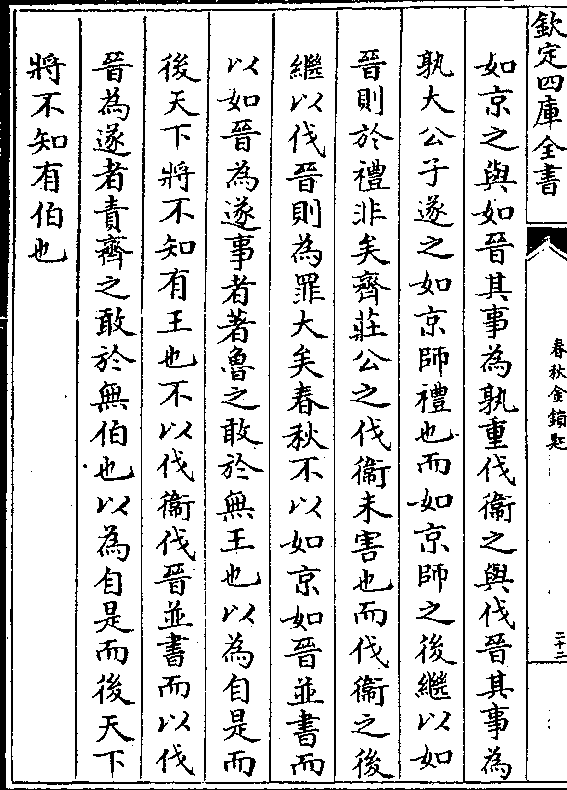 欽定四庫全書
春秋金鎖匙
二十二
如京之與如晉其事為孰重伐衞之與伐晉其事為
孰大公子遂之如京師禮也而如京師之後繼以如
晉則於禮非矣齊莊公之伐衞未害也而伐衞之後
繼以伐晉則為罪大矣春秋不以如京如晉並書而
以如晉為遂事者著魯之敢於無王也以為自是而
後天下將不知有王也不以伐衞伐晉並書而以伐
晉為遂者責齊之敢於無伯也以為自是而後天下
將不知有伯也